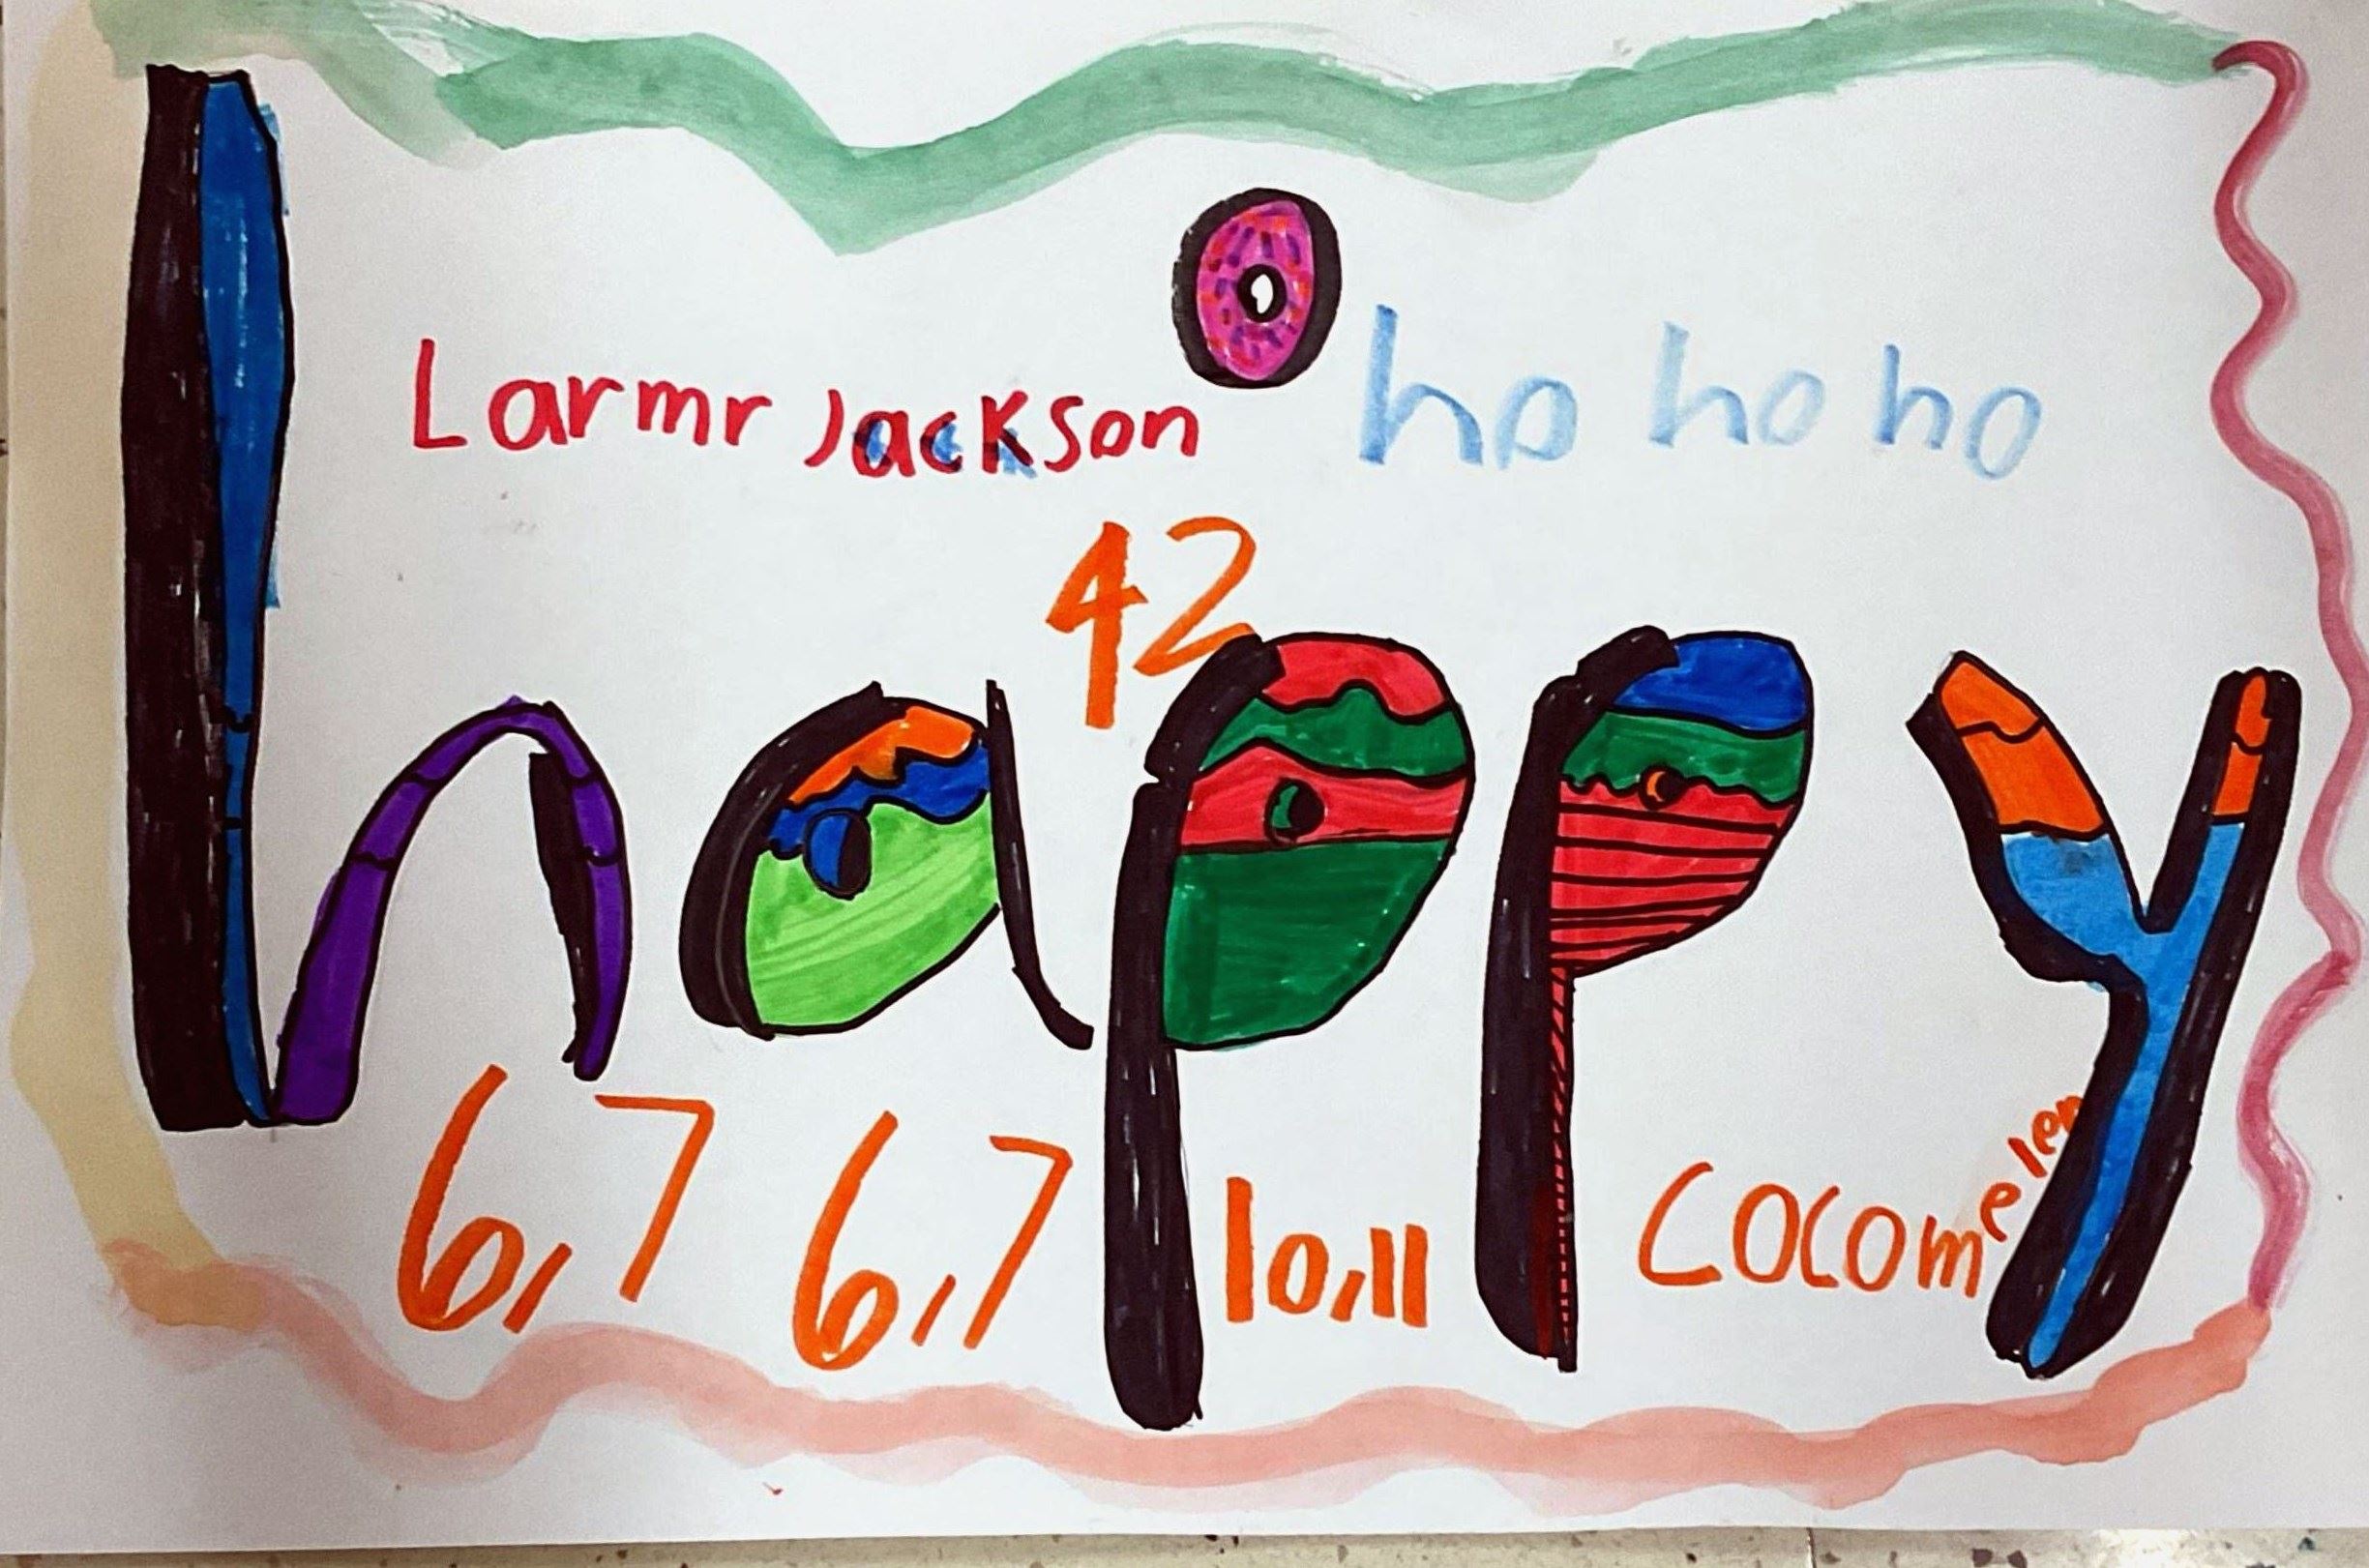 Larmr Jackson ho ho ho
42
happy
6,7 6,7 10,11 COCOmelen